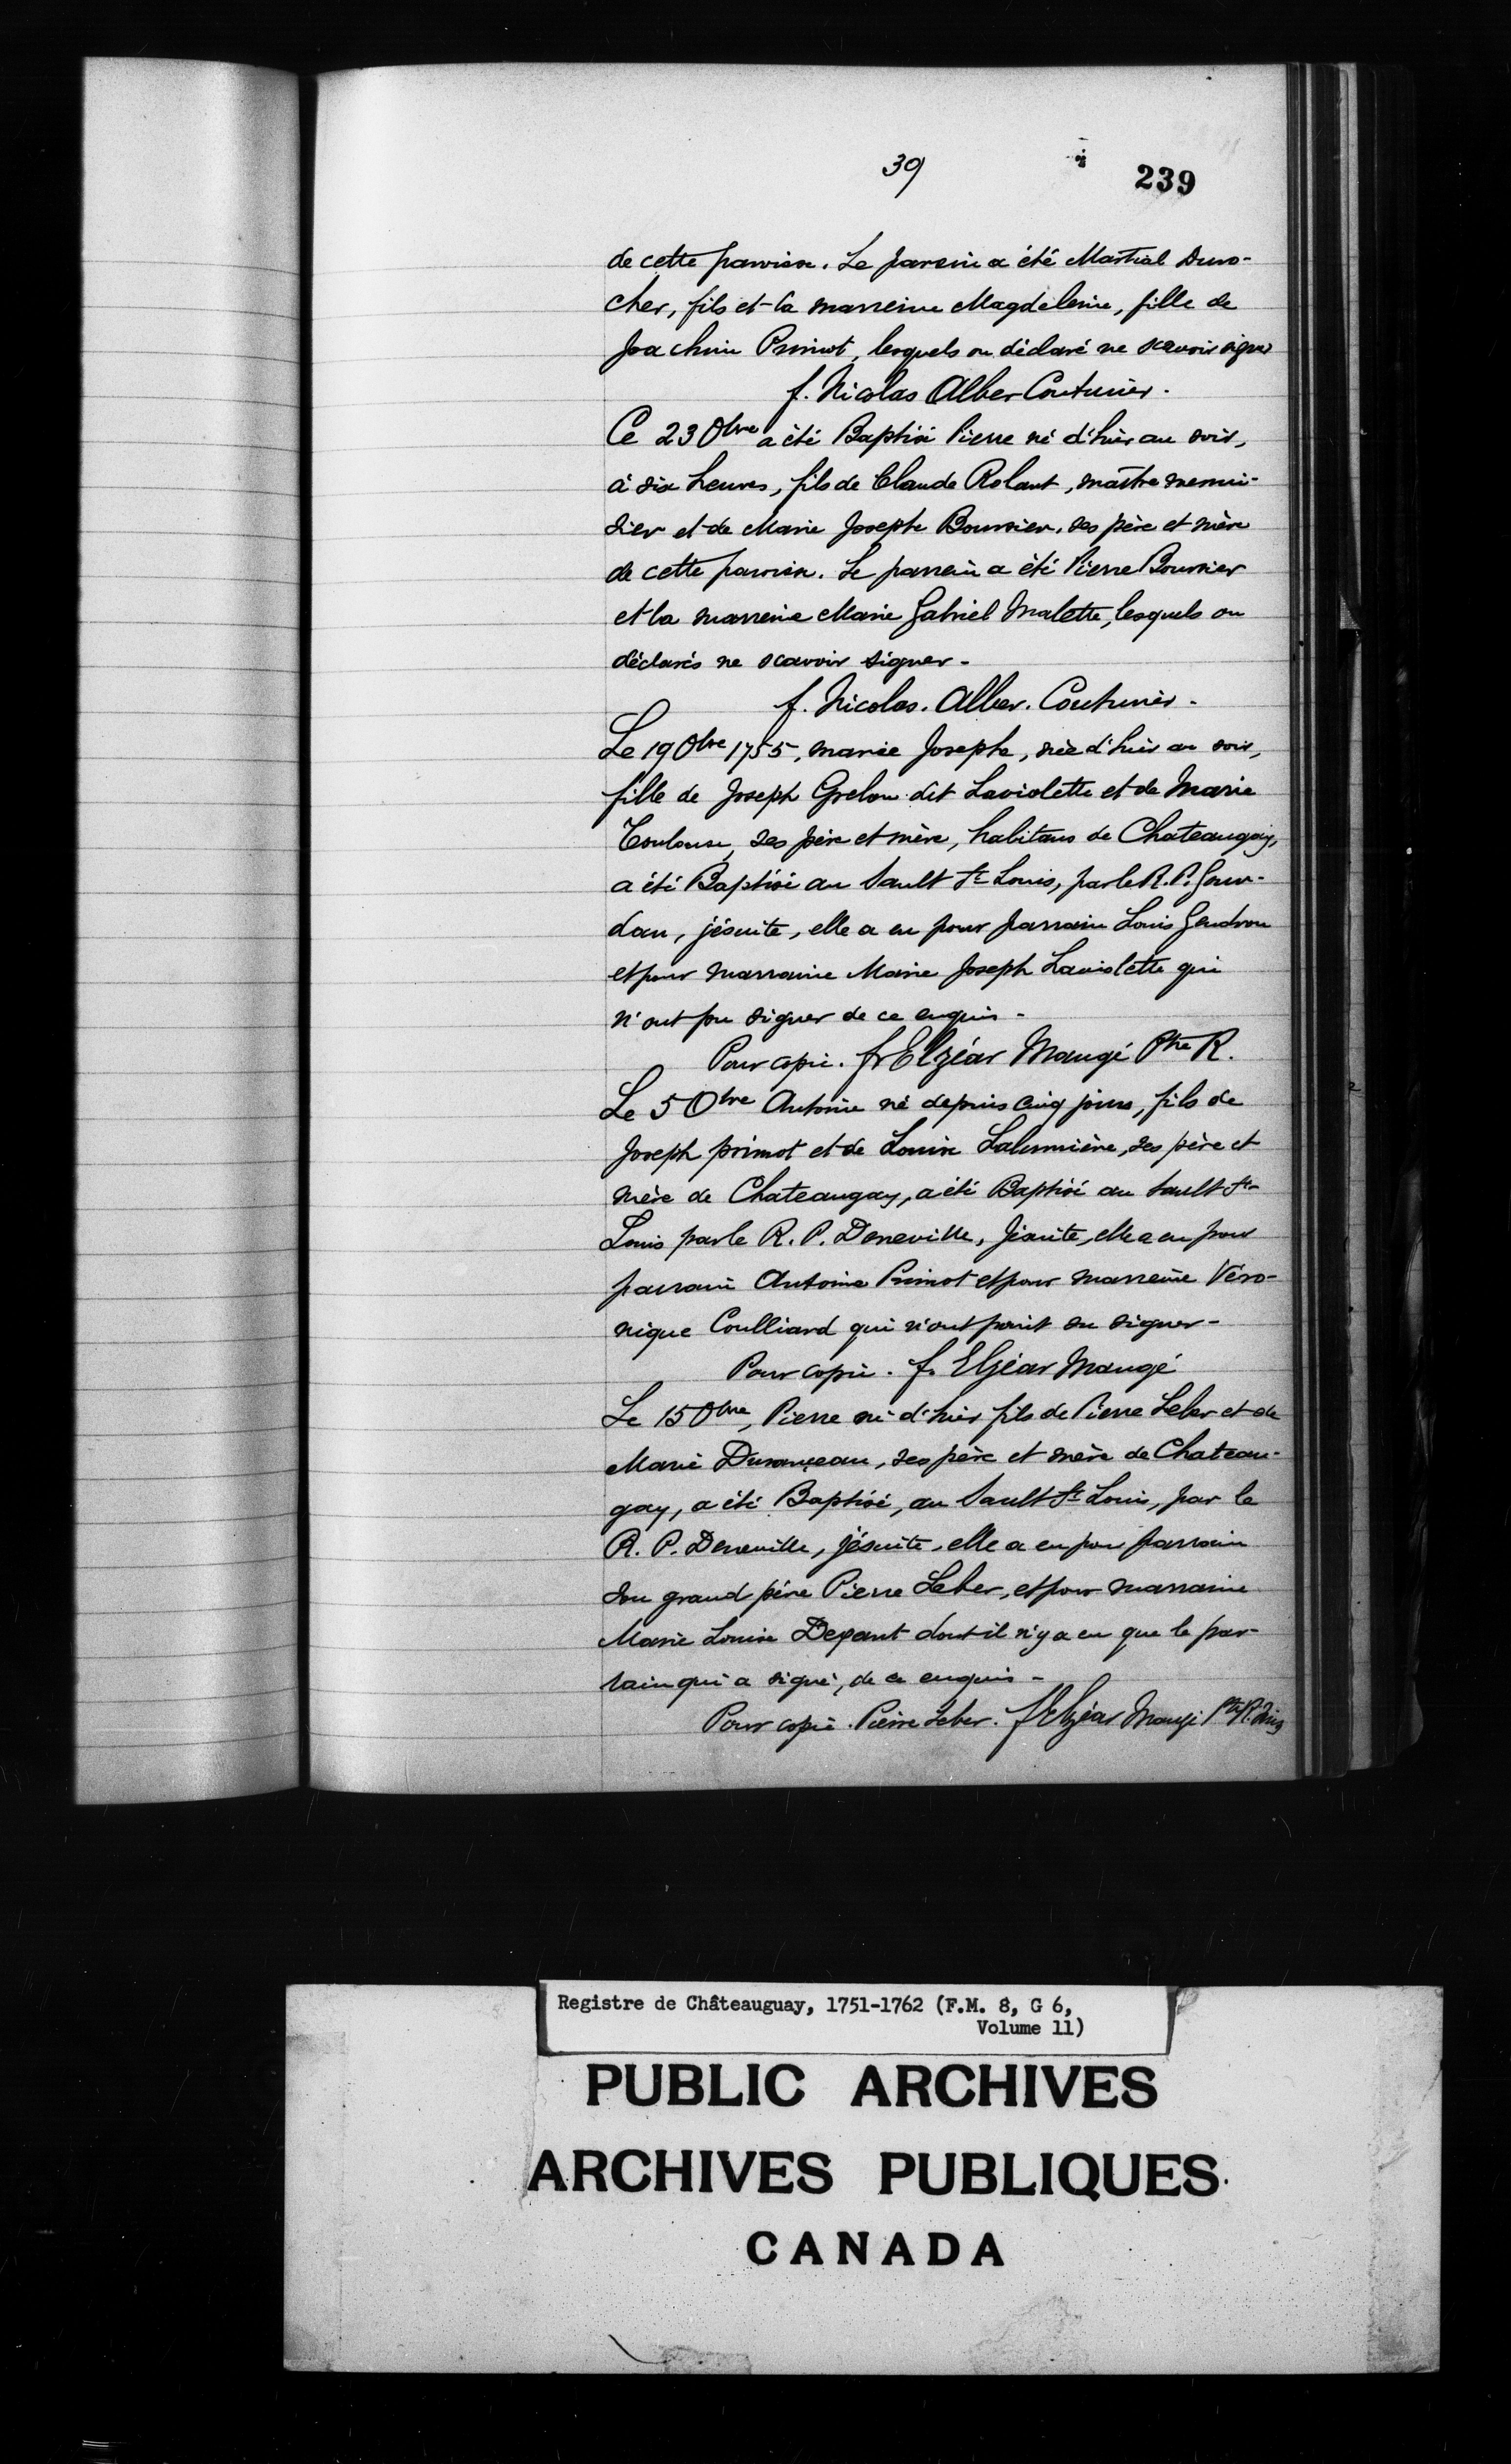 39
239
de cette paroisse. Le parein a été Martial Duro-
cher, fils et la marreine Magdeleine, fille de
Joachim Primot, lesquels on déclaré ne scavoir signer
f. Nicolas Alber Couturier.
Ce 23 Obre a été Baptisé Pierre né d'hier au soir,
à six heures, fils de Claude Rolant, maître menui-
sier et de Marie Joseph Boursier, ses père et mère
de cette paroisse. Le parrein a été Pierre Boursier
et la marreine Marie Gabriel Malette, lesquels on
déclarés ne scavoir signer.
f. Nicolas. Alber. Couturier.
Le 19 Obre 1755, mariee Josephe, née d'hier au soir,
fille de Joseph Grelon dit Laviolette et de Marie
Toulouse, ses père et mère, habitans de Chateaugay,
a été Baptisé au Sault St Louis, par le R. P. Gour-
dan, jésuite, elle a eu pour parrain Louis Gendron
et pour marraine Marie Joseph Laviolette qui
n'ont pu signer de ce enquis.
Pour copie. fr Elzéar Maugé Ptre R.
Le 5 Obre Antoine né depuis cinq jours, fils de
Joseph primot et de Louise Lalumière, ses père et
mère de Chateaugay, a été Baptisé au Sault St-
Louis par le R. P. Deneville, Jésuite, elle a eu pour
parrain Antoine Primot et pour marreine Véro-
nique Coulliard qui n'ont point su signer-
Pour copie. f. Elzéar Maugé
Le 15 Obre, Pierre né d'hier fils de Pierre Leber et de
Marie Duranceau, ses père et mère de Chateau-
gay, a été Baptisé, au Sault St Louis, par le
R. P. Deneville, jésuite, elle a eu pour parrain
son grand père Pierre Leber, et pour marraine
Marie Louise Depant dont il n'y a eu que le par-
rain qui a signé, de ce enquis-
Pour copie. Pierre Leber. f Elzéar Maugé Ptre R.
Registre de Châteauguay, 1751-1762 (F.M. 8, G 6,
Volume 11)
PUBLIC ARCHIVES
ARCHIVES PUBLIQUES
CANADA